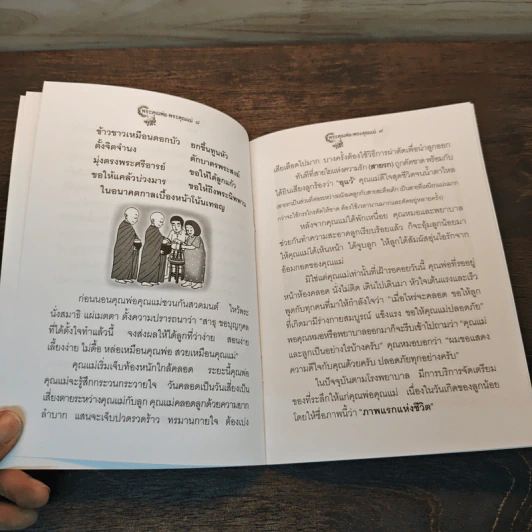 พระคุณพ่อ พระคุณแม่ ๘
ข้าวขาวเหมือนดอกบัว ยกขึ้นทูนหัว
ตั้งจิตจำนง ตักบาตรพระสงฆ์
มุ่งตรงพระศรีอารย์ ขอให้ได้ลูกแก้ว
ขอให้แคล้วบ่วงมาร ขอให้ถึงพระนิพพาน
ในอนาคตกาลเบื้องหน้าโน้นเทอญ
ก่อนนอนคุณพ่อคุณแม่ชวนกันสวดมนต์ ไหว้พระ
นั่งสมาธิ แผ่เมตตา ตั้งความปรารถนาว่า "สาธุ ขอบุญกุศล
ที่ได้ตั้งใจทำแล้วนี้ จงส่งผลให้ได้ลูกที่ว่าง่าย สอนง่าย
เลี้ยงง่าย ไม่ดื้อ หล่อเหมือนคุณพ่อ สวยเหมือนคุณแม่"
คุณแม่เริ่มเจ็บท้องหนักใกล้คลอด ระยะนี้คุณพ่อ
คุณแม่จะรู้สึกกระวนกระวายใจ วันคลอดเป็นวันเสี่ยงเป็น
เสี่ยงตายระหว่างคุณแม่กับลูก คุณแม่คลอดลูกด้วยความยาก
ลำบาก แสนจะเจ็บปวดรวดร้าว ทรมานกายใจ ต้องเบ่ง
พระคุณพ่อ พระคุณแม่ ๙
เสียเลือดไปมาก บางครั้งต้องใช้วิธีการผ่าตัดเพื่อนำลูกออก
ทันทีที่สายใยแห่งความรัก (สายรก) ถูกตัดขาด พร้อมกับ
ได้ยินเสียงลูกร้องว่า "อุแว้" คุณแม่ดีใจสุดชีวิตจนน้ำตาไหล
หลังจากคุณแม่ได้พักเหนื่อย คุณหมอและพยาบาล
ช่วยกันทำความสะอาดลูกเรียบร้อยแล้ว ก็จะอุ้มลูกน้อยมา
ให้คุณแม่ได้เห็นหน้า ได้จูบลูก ให้ลูกได้สัมผัสอุ่นไอรักจาก
อ้อมกอดของคุณแม่
มิใช่แค่คุณแม่เท่านั้นที่เฝ้ารอคอยวันนี้ คุณพ่อที่รออยู่
หน้าห้องคลอด นั่งไม่ติด เดินไปเดินมา หัวใจเต้นแรงและเร็ว
พูดกับทุกคนที่มาให้กำลังใจว่า "เมื่อไหร่จะคลอด ขอให้ลูก
ที่เกิดมามีร่างกายสมบูรณ์ แข็งแรง ขอให้คุณแม่ปลอดภัย"
พอคุณหมอหรือพยาบาลออกมาก็จะรีบเข้าไปถามว่า "คุณแม่
และลูกเป็นอย่างไรบ้างครับ" คุณหมอบอกว่า "ผมขอแสดง
ความดีใจกับคุณด้วยครับ ปลอดภัยทุกอย่างครับ"
ในปัจจุบันตามโรงพยาบาล มีการบริการจัดเตรียม
ของที่ระลึกให้แก่คุณพ่อคุณแม่ เนื่องในวันเกิดของลูกน้อย
โดยให้ชื่อภาพนี้ว่า "ภาพแรกแห่งชีวิต"